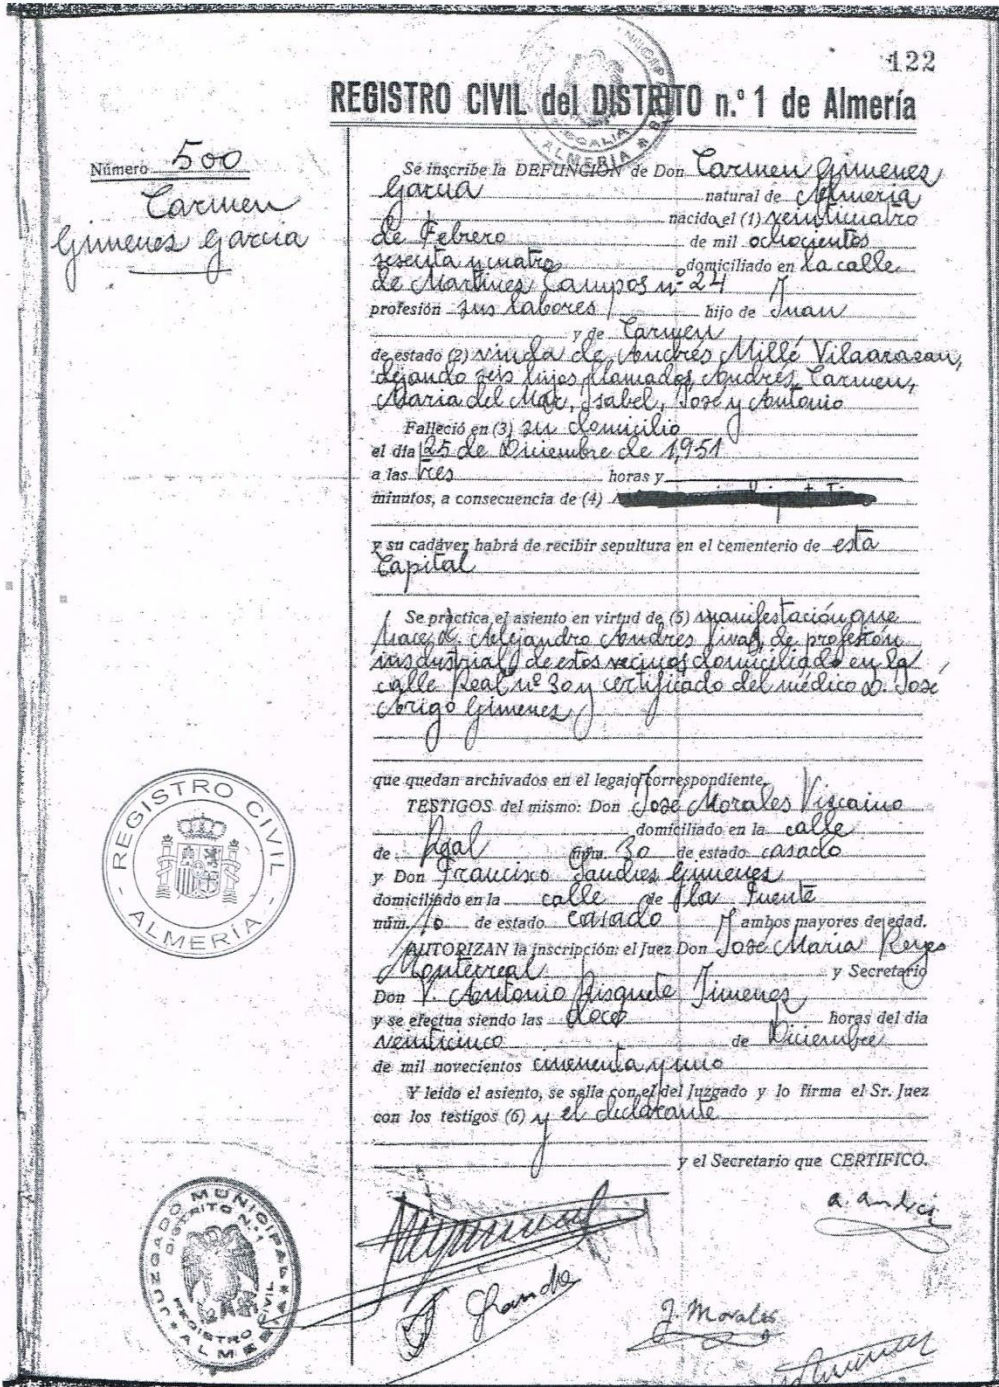 122
REGISTRO CIVIL del DISTRITO n.º 1 de Almería
Número 500
Carmen
Gimenez Garcia
Se inscribe la DEFUNCIÓN de Don Carmen Gimenez
Garcia natural de Almeria
nacido el (1) veinticuatro
de Febrero de mil ochocientos
sesenta y cuatro domiciliado en la calle
de Martinez Campos nº 24
profesión sus labores hijo de Juan
y de Carmen
de estado (2) viuda de Andrés Millé Vilaarasau,
dejando seis hijos llamados Andrés, Carmen,
Maria del Mar, Isabel, José y Antonio
Falleció en (3) su domicilio
el dia 25 de Diciembre de 1,951
a las tres horas y
minutos, a consecuencia de (4)
y su cadáver habrá de recibir sepultura en el cementerio de esta
Capital
Se practica el asiento en virtud de (5) manifestación que
hace D. Alejandro Andres Vivas, de profesión
insdustrial, de estos vecinos domiciliado en la
calle Real nº 30 y certificado del médico D. José
Arigo Gimenez
que quedan archivados en el legajo correspondiente.
TESTIGOS del mismo: Don José Morales Viscaino
domiciliado en la calle
de Real núm. 30 de estado casado
y Don Francisco Gimenes
domiciliado en la calle de la Fuente
núm. 10 de estado casado ambos mayores de edad.
AUTORIZAN la inscripción: el Juez Don José Maria Reyes
Monterreal y Secretario
Don V. Antonio Jimenez
y se efectua siendo las doce horas del dia
veinticinco de Diciembre
de mil novecientos cincuenta y uno
Y leido el asiento, se sella con el del Juzgado y lo firma el Sr. Juez
con los testigos (6) y el declarante
y el Secretario que CERTIFICO.
J. Morales
REGISTRO CIVIL - ALMERÍA -
JUZGADO MUNICIPAL DISTRITO N.º 1
REGISTRO CIVIL ALMERÍA